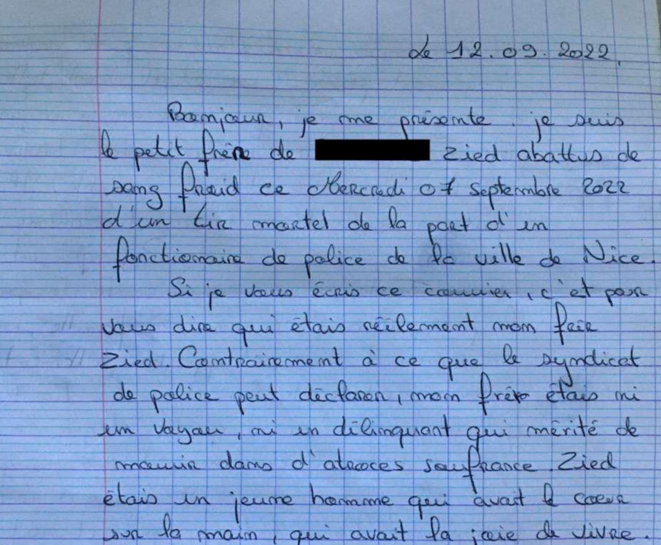 Le 12.09.2022.
Bonjour, je me présente je suis
le petit frère de Zied abattus de
sang froid ce Mercredi 07 septembre 2022
d'un tir mortel de la part d'un
fonctionaire de police de la ville de Nice.
Si je vous écris ce courrier, c'et pour
vous dire qui étais réelement mon frère
Zied. Contrairement à ce que le syndicat
de police peut déclarer, mon frère étais ni
un voyou, ni un délinquant qui mérité de
mourir dans d'atroces soufrance. Zied
étais un jeune homme qui avait le coeur
sur la main, qui avait la joie de vivre.